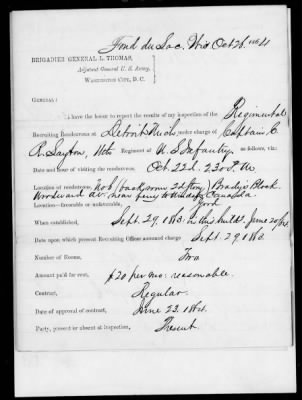 Fond du Lac, Wis Oct 26 1864
BRIGADIER GENERAL L. THOMAS,
Adjutant General U. S. Army,
WASHINGTON CITY, D. C.
GENERAL:
I have the honor to report the results of my inspection of the Regimental
Recruiting Rendezvous at Detroit Mich under charge of Captain C
R. Layton, 16th Regiment of U. S Infantry, as follows, viz:
Date and hour of visiting the rendezvous. Oct. 22d. 2.30 P.M
Location of rendezvous, No 6 (back room 2d story) Brady's Block
Woodward av. near ferry to Windsor Canada
Location—favorable or unfavorable, Good
When established, Sept. 29, 1863. in this build. June 20/64
Date upon which present Recruiting Officer assumed charge Sept. 29, 1863.
Number of Rooms, Two
Amount paid for rent, $20 per mo: reasonable.
Contract, Regular.
Date of approval of contract, June 23. 1864.
Party, present or absent at inspection, Present.